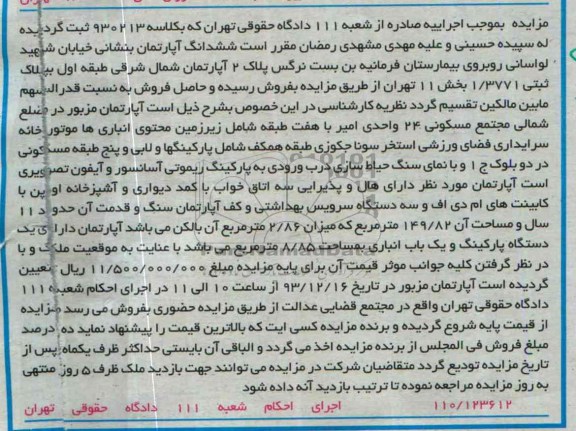 مزایده بموجب اجراییه صادره از شعبه ۱۱۱ دادگاه حقوقی تهران که بکلاسه ۹۳۰۲۱۳ ثبت گردیده
له سپیده حسینی و علیه مهدی مشهدی رمضان مقرر است ششدانگ آپارتمان بنشانی خیابان شهید
لواسانی روبروی بیمارستان فرمانیه بن بست نرگس پلاک ۲ آپارتمان شمال شرقی طبقه اول بپلاک
ثبتی ۱/۳۷۷۱ بخش ۱۱ تهران از طریق مزایده بفروش رسیده و حاصل فروش به نسبت قدرالسهم
مابین مالکین تقسیم گردد نظریه کارشناسی در این خصوص بشرح ذیل است آپارتمان مزبور در ضلع
شمالی مجتمع مسکونی ۲۴ واحدی امیر با هفت طبقه شامل زیرزمین محتوی انباری ها موتور خانه
سرایداری فضای ورزشی استخر سونا جکوزی طبقه همکف شامل پارکینگها و لابی و پنج طبقه مسکونی
در دو بلوک ج ۱ و با نمای سنگ حیاط سازی درب ورودی به پارکینگ ریموتی آسانسور و آیفون تصویری
است آپارتمان مورد نظر دارای هال و پذیرایی سه اتاق خواب با کمد دیواری و آشپزخانه اوپن با
کابینت های ام دی اف و سه دستگاه سرویس بهداشتی و کف آپارتمان سنگ و قدمت آن حدود ۱۱
سال و مساحت آن ۱۴۹/۸۲ مترمربع که میزان ۲/۸۶ مترمربع آن بالکن می باشد آپارتمان دارای یک
دستگاه پارکینگ و یک باب انباری بمساحت ۸/۸۵ مترمربع می باشد با عنایت به موقعیت ملک و با
در نظر گرفتن کلیه جوانب موثر قیمت آن برای پایه مزایده مبلغ ۱۱/۵۰۰/۰۰۰/۰۰۰ ریال تعیین
گردیده است آپارتمان مزبور در تاریخ ۹۳/۱۲/۱۶ از ساعت ۱۰ الی ۱۱ در اجرای احکام شعبه ۱۱۱
دادگاه حقوقی تهران واقع در مجتمع قضایی عدالت از طریق مزایده حضوری بفروش می رسد مزایده
از قیمت پایه شروع گردیده و برنده مزایده کسی ایت که بالاترین قیمت را پیشنهاد نماید ده درصد
مبلغ فروش فی المجلس از برنده مزایده اخذ می گردد و الباقی آن بایستی حداکثر ظرف یکماه پس از
تاریخ مزایده تودیع گردد متقاضیان شرکت در مزایده می توانند جهت بازدید ملک ظرف ۵ روز منتهی
به روز مزایده مراجعه نموده تا ترتیب بازدید آنه داده شود
۱۱۰/۱۲۳۶۱۲ اجرای احکام شعبه ۱۱۱ دادگاه حقوقی تهران